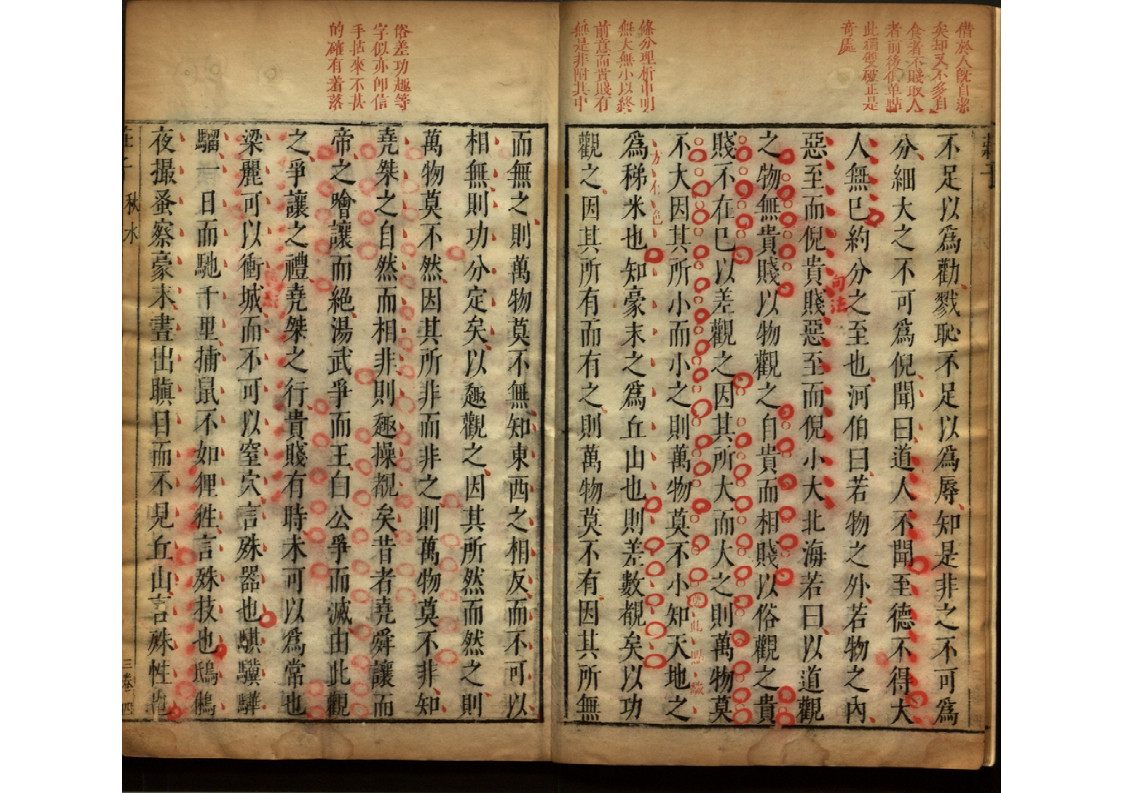 借於人旣自潔
矣却又不多自
食者不賤取人
者前後俱單點
此獨雙確正是
奇處
條分理析申明
無大無小以終
前意而貴賤有
無是非附其中
不足以爲勸戮恥不足以爲辱知是非之不可爲
分細大之不可爲倪聞曰道人不聞至德不得大
人無巳約分之至也河伯曰若物之外若物之內
惡至而倪貴賤惡至而倪小大北海若曰以道觀
句法
之物無貴賤以物觀之自貴而相賤以俗觀之貴
賤不在巳以差觀之因其所大而大之則萬物莫
不大因其所小而小之則萬物莫不小知天地之
爲稊米也知豪末之爲丘山也則差數覩矣以功
觀之因其所有而有之則萬物莫不有因其所無
俗差功趣等
字似亦卽信
手拈來不甚
的確有着落
而無之則萬物莫不無知東西之相反而不可以
相無則功分定矣以趣觀之因其所然而然之則
萬物莫不然因其所非而非之則萬物莫不非知
堯桀之自然而相非則趣操覩矣昔者堯舜讓而
帝之噲讓而絕湯武爭而王白公爭而滅由此觀
之爭讓之禮堯桀之行貴賤有時未可以爲常也
梁麗可以衝城而不可以窒穴言殊器也騏驥驊
騮一日而馳千里捕鼠不如狸狌言殊技也鴟鵂
夜撮蚤察豪末晝出瞋目而不見丘山言殊性也
莊子 秋水 三卷 四